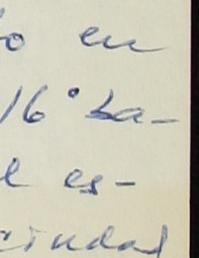 o en
16° ba-
l es-
ciudad